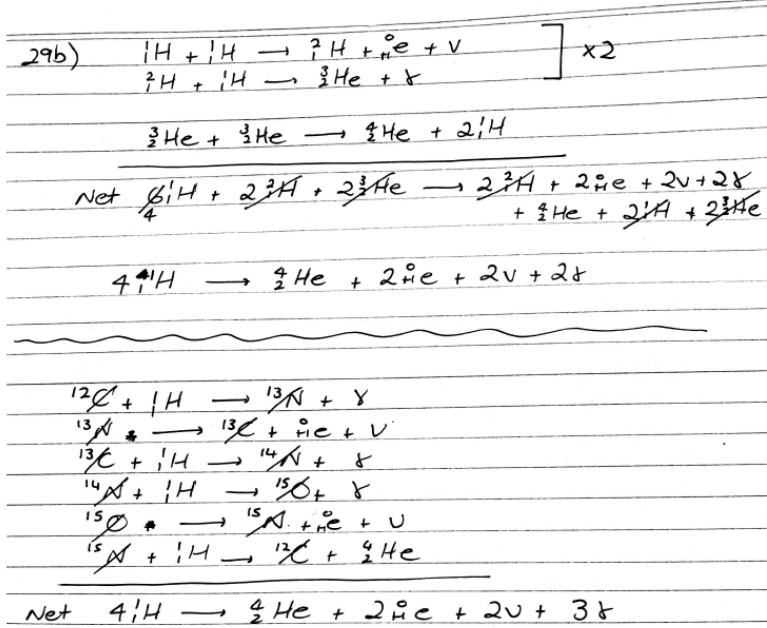 29b) ¹₁H + ¹₁H → ²₁H + ⁰₊₁e + ν ] ×2
²₁H + ¹₁H → ³₂He + γ
³₂He + ³₂He → ⁴₂He + 2¹₁H
Net 6¹₁H + 2²₁H + 2³₂He → 2²₁H + 2⁰₊₁e + 2ν + 2γ
4 + ⁴₂He + 2¹₁H + 2³₂He
4¹₁H → ⁴₂He + 2⁰₊₁e + 2ν + 2γ
¹²C + ¹₁H → ¹³N + γ
¹³N → ¹³C + ⁰₊₁e + ν
¹³C + ¹₁H → ¹⁴N + γ
¹⁴N + ¹₁H → ¹⁵O + γ
¹⁵O → ¹⁵N + ⁰₊₁e + ν
¹⁵N + ¹₁H → ¹²C + ⁴₂He
Net 4¹₁H → ⁴₂He + 2⁰₊₁e + 2ν + 3γ